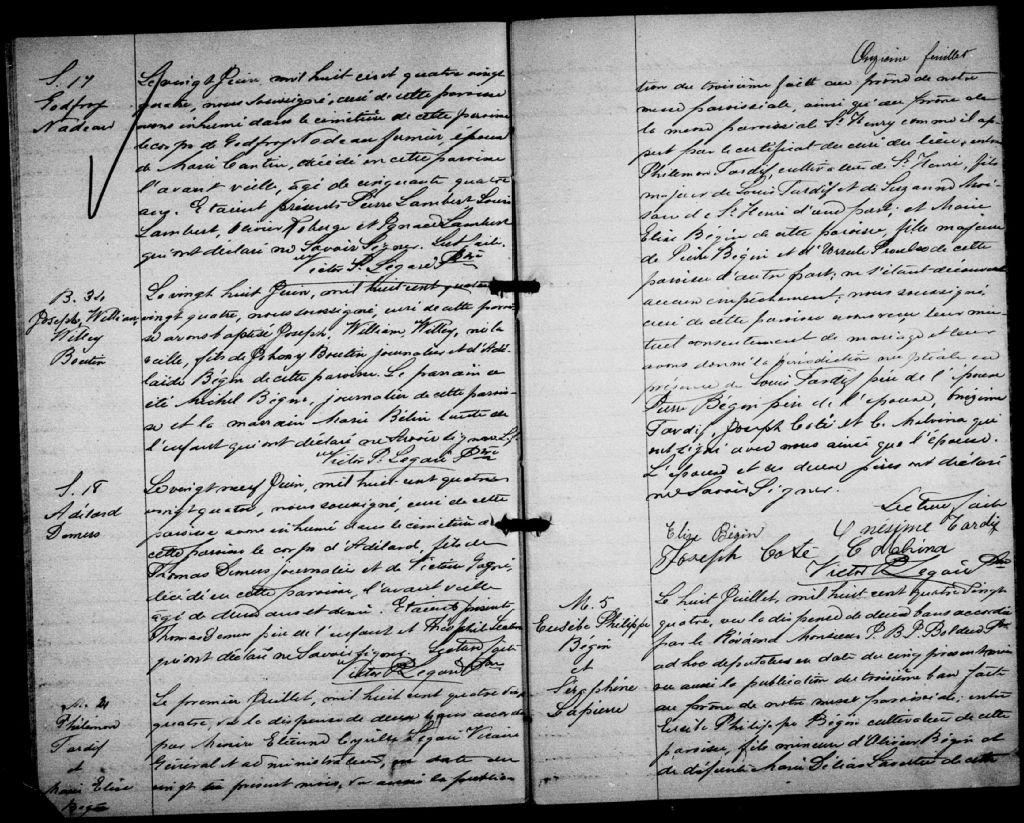 S. 17
Godfroy
Nadeau
Le vingt Juin mil huit cent quatre vingt
quatre, nous soussigné, curé de cette paroisse
avons inhumé dans le cimetière de cette paroisse
le corps de Godfroy Nadeau Junior, époux
de Marie Cantin, décédé en cette paroisse
l'avant veille, âgé de cinquante quatre
ans. Etaient présents Pierre Lambert Louis
Lambert, Olivier Roberge et Ignace Lambert
qui ont déclaré ne savoir signer. Lect. faite.
Victor P. Legaré Ptre
B. 34
Joseph, William,
Willey
Boutin
Le vingt huit Juin, mil huit cent quatre
vingt quatre, nous soussigné, curé de cette parois
se avons baptisé Joseph, William, Willey, né la
veille, fils de Thomy Boutin journalier et d'Adé
laïde Bégin de cette paroisse. Le parrain a
été Michel Bégin, journalier de cette parois
se et la marraine Marie Bélin tante de
l'enfant qui ont déclaré ne savoir signer. L. f.
Victor P. Legaré Ptre
S. 18
Adélard
Demers
Le vingt neuf Juin, mil huit cent quatre
vingt quatre, nous soussigné, curé de cette
paroisse avons inhumé dans le cimetière de
cette paroisse le corps d'Adélard, fils de
Thomas Demers journalier et de Victoire Gagné,
décédé en cette paroisse, l'avant veille
âgé de deux ans et demi. Etaient présents
Thomas Demers père de l'enfant et Théophile
qui ont déclaré ne savoir signer. Lecture faite
Victor P. Legaré Ptre
M. 4
Philémon
Tardif
et
Marie Elise
Bégin
Le premier Juillet, mil huit cent quatre vingt
quatre, vu la dispense de deux bans accordée
par Messire Etienne Cyrille Legaré Vicaire
Général et administrateur, en date du
vingt six présent mois, vu aussi la publica
Onzième feuillet
tion du troisième faite au prône de notre
messe paroissiale, ainsi qu'au prône de
la messe paroissiale St Henry comme il ap
pert par le certificat du curé du lieu, entre
Philémon Tardif, cultivateur de St Henri, fils
majeur de Louis Tardif et de Suzanne
de St Henri d'une part; et Marie
Elise Bégin de cette paroisse, fille majeure
de Pierre Bégin et d'Ursule Proulx de cette
paroisse d'autre part; ne s'étant découvert
aucun empêchement; nous soussigné,
curé de cette paroisse avons reçu leur mu
tuel consentement de mariage et leur
avons donné la bénédiction nuptiale en
présence de Louis Tardif père de l'époux
Pierre Bégin père de l'épouse, Onézime
Tardif, Joseph Coté et C. Malvina qui
ont signé avec nous ainsi que l'épouse.
L'époux et les deux pères ont déclaré
ne savoir signer.
Lecture faite
Elize Bégin Onésime Tardif
Joseph Coté C Malvina
Victor P. Legaré Ptre
M. 5
Eusèbe Philippe
Bégin
et
Séraphine
Lapierre
Le huit Juillet, mil huit cent quatre vingt
quatre, vu la dispense de deux bans accordée
par le Révérend Monsieur P. B. P. Bolduc Ptre
ad hoc deputatus en date du cinq présent mois
vu aussi la publication du troisième ban faite
au prône de notre messe paroissiale; entre
Eusèbe Philippe Bégin cultivateur de cette
paroisse, fils mineur d'Olivier Bégin et
de défunte Marie Délias de cette